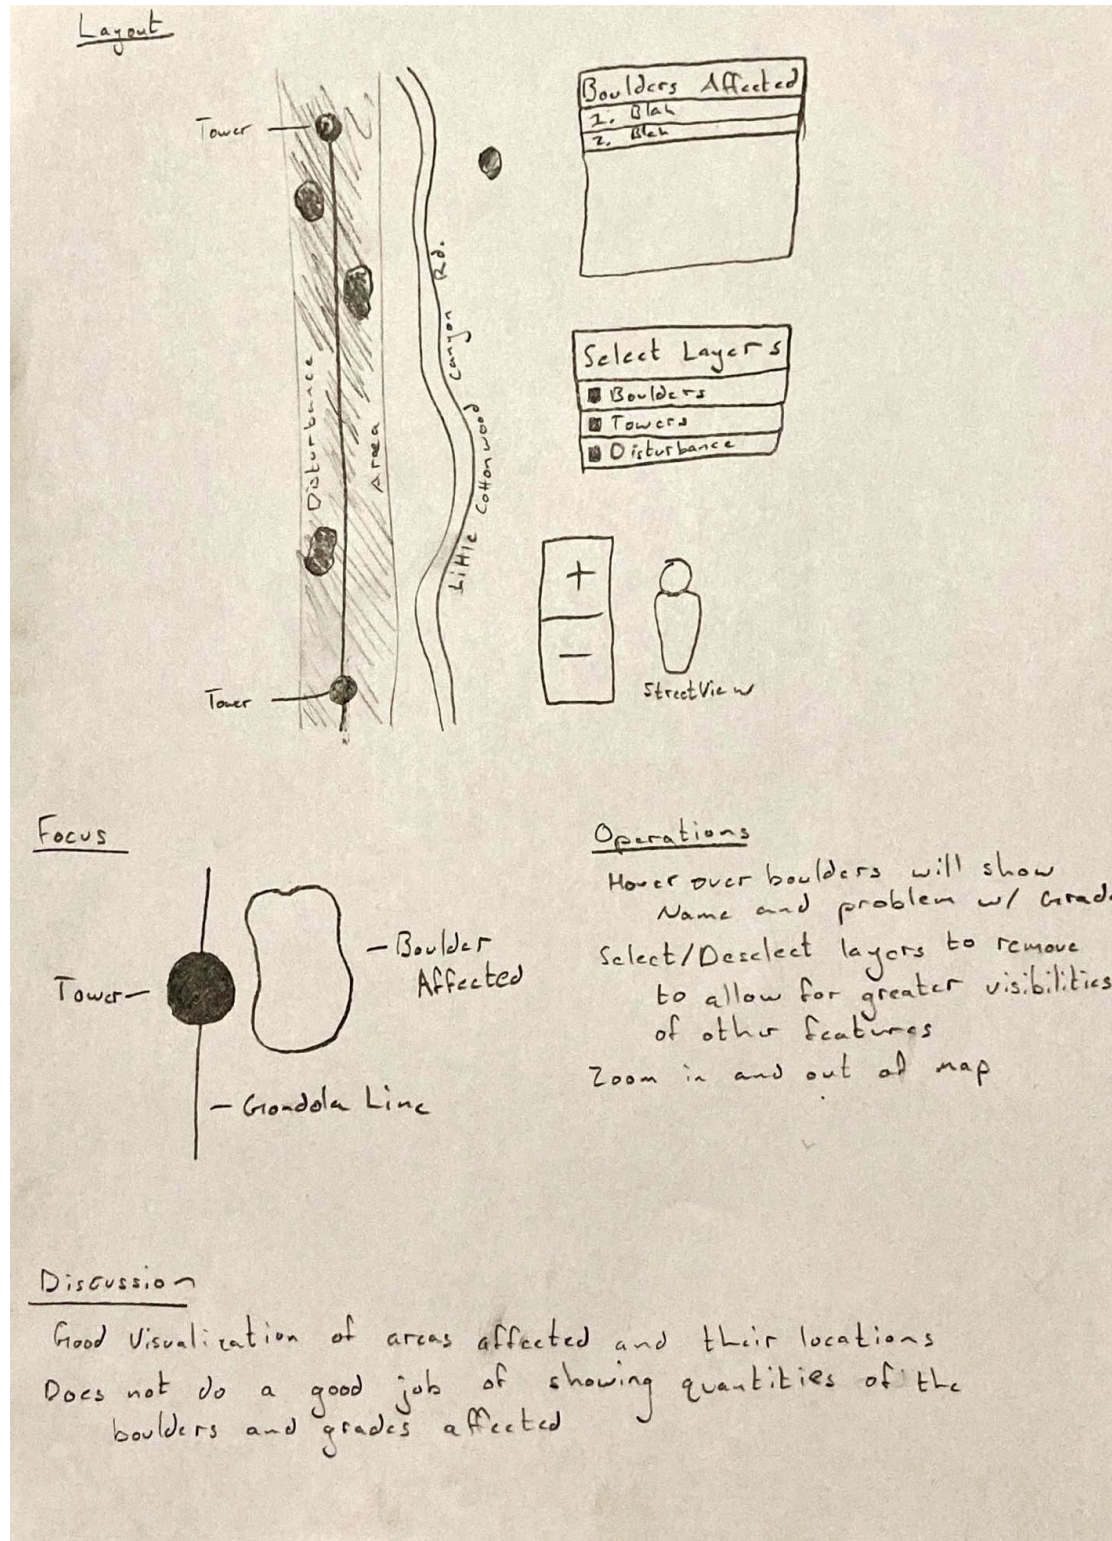 Layout
Tower
Disturbance
Area
Little Cottonwood Canyon Rd.
Tower
Boulders Affected
1. Blah
2. Blah
Select Layers
Boulders
Towers
Disturbance
+
−
StreetView
Focus
Tower
Boulder
Affected
Gondola Line
Operations
Hover over boulders will show
Name and problem w/ Grade
Select/Deselect layers to remove
to allow for greater visibilities
of other features
Zoom in and out of map
Discussion
Good Visualization of areas affected and their locations
Does not do a good job of showing quantities of the
boulders and grades affected